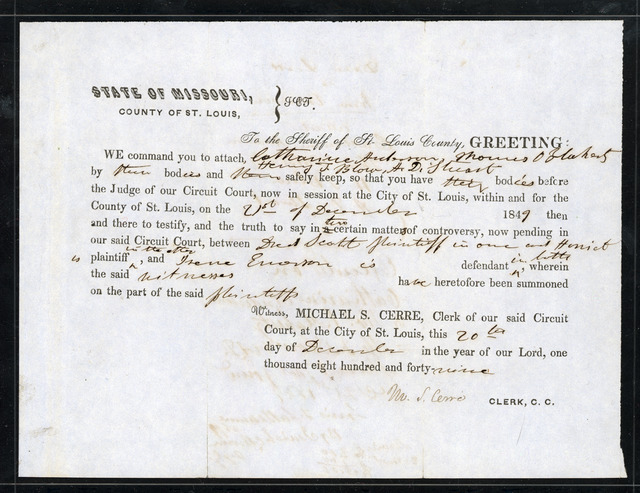 STATE OF MISSOURI, } SCT.
COUNTY OF ST. LOUIS,
To the Sheriff of St. Louis County, GREETING:
WE command you to attach, Catharine Anderson, Thomas O Flaherty
Henry T Blow, A. D. Stuart
by their bodies and them safely keep, so that you have their bodies before
the Judge of our Circuit Court, now in session at the City of St. Louis, within and for the
County of St. Louis, on the 21st of December 1849 then
and there to testify, and the truth to say in two certain matters of controversy, now pending in
our said Circuit Court, between Dred Scott plaintiff in one and Harriet
is plaintiff in the other, and Irene Emerson is defendant in both, wherein
the said witnesses have heretofore been summoned
on the part of the said plaintiffs
Witness, MICHAEL S. CERRE, Clerk of our said Circuit
Court, at the City of St. Louis, this 20th
day of December in the year of our Lord, one
thousand eight hundred and forty-nine
M. S. Cerre CLERK, C. C.